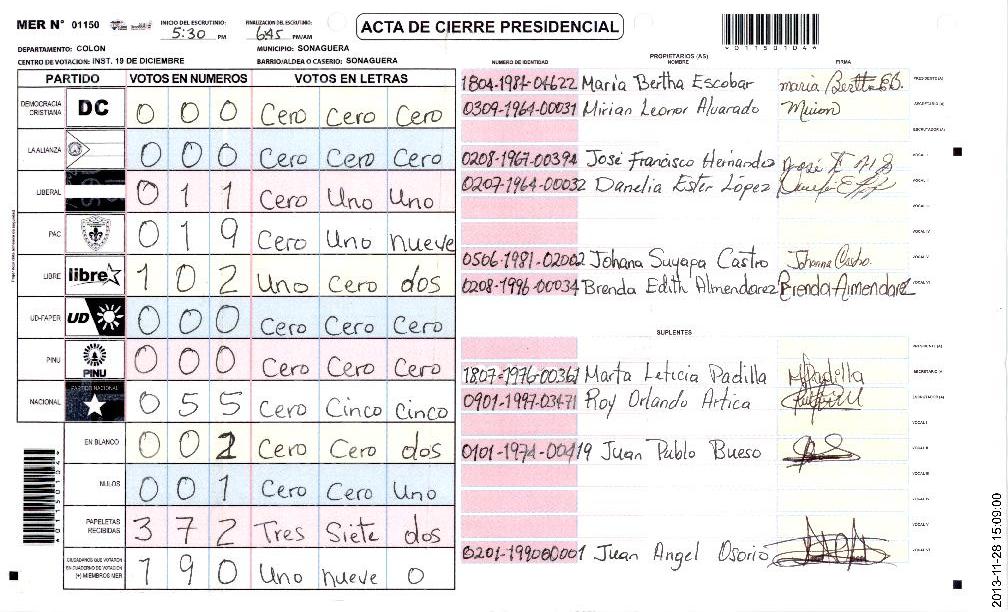 MER N° 01150
INICIO DEL ESCRUTINIO: 5:30 PM
FINALIZACION DEL ESCRUTINIO: 6:45 PM/AM
ACTA DE CIERRE PRESIDENCIAL
DEPARTAMENTO: COLON
MUNICIPIO: SONAGUERA
CENTRO DE VOTACION: INST. 19 DE DICIEMBRE
BARRIO/ALDEA O CASERIO: SONAGUERA
PARTIDO VOTOS EN NUMEROS VOTOS EN LETRAS
DEMOCRACIA CRISTIANA DC 0 0 0 Cero Cero Cero
LA ALIANZA 0 0 0 Cero Cero Cero
LIBERAL 0 1 1 Cero Uno Uno
PAC 0 1 9 Cero Uno nueve
LIBRE libre 1 0 2 Uno Cero dos
UD-FAPER UD 0 0 0 Cero Cero Cero
PINU PINU 0 0 0 Cero Cero Cero
NACIONAL PARTIDO NACIONAL 0 5 5 Cero Cinco Cinco
EN BLANCO 0 0 2 Cero Cero dos
NULOS 0 0 1 Cero Cero Uno
PAPELETAS RECIBIDAS 3 7 2 Tres Siete dos
CIUDADANOS QUE VOTARON EN CUADERNO DE VOTACION (+) MIEMBROS MER 1 9 0 Uno nueve 0
V01150104
A01150104
PROPIETARIOS (AS)
NUMERO DE IDENTIDAD NOMBRE FIRMA
1804-1981-04622 María Bertha Escobar PRESIDENTE (A)
0309-1964-00031 Mirian Leonor Alvarado Mirian SECRETARIO (A)
ESCRUTADOR (A)
0208-1967-00394 José Francisco Hernandez VOCAL I
0207-1964-00032 Danelia Ester López VOCAL II
VOCAL III
VOCAL IV
0506-1981-02002 Johana Suyapa Castro Johana Castro VOCAL V
0208-1996-00034 Brenda Edith Almendarez Brenda Almendarez VOCAL VI
SUPLENTES
PRESIDENTE (A)
1807-1976-00361 Marta Leticia Padilla MPadilla SECRETARIO (A)
0901-1997-03471 Roy Orlando Artica ESCRUTADOR (A)
VOCAL I
0101-1974-00419 Juan Pablo Bueso VOCAL II
VOCAL III
VOCAL IV
VOCAL V
0201-199000001 Juan Angel Osorio VOCAL VI
2013-11-28 15:09:00